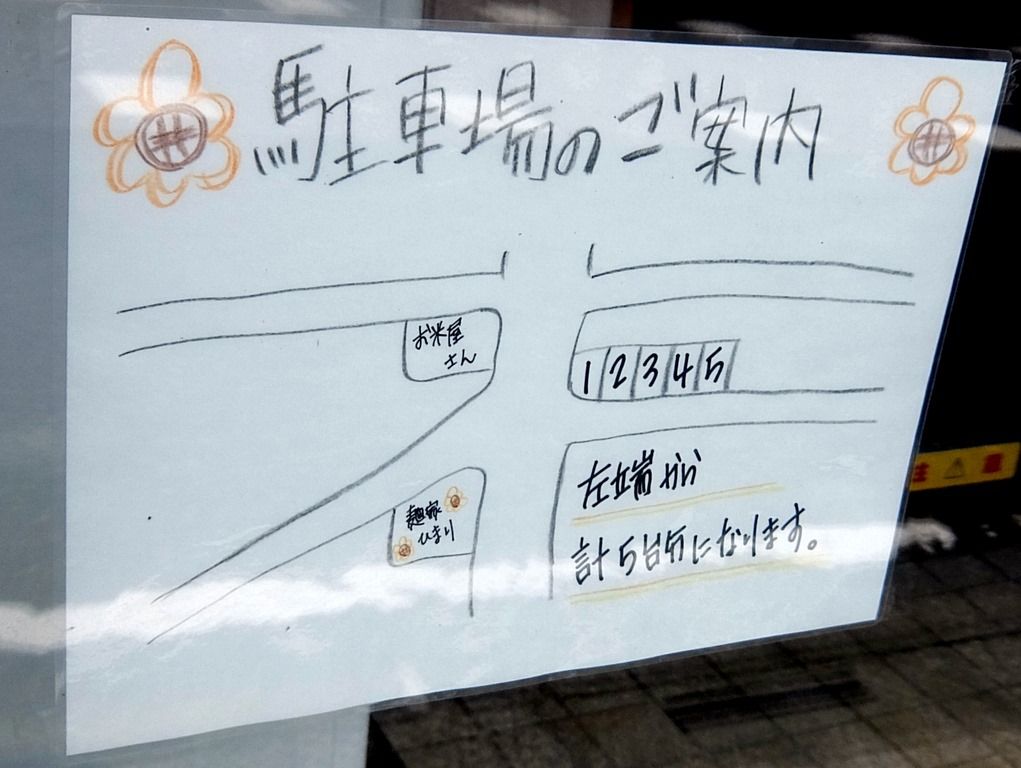 駐車場のご案内
お米屋
さん
1 2 3 4 5
左端から
計5台分になります。
麺家
ひまり
注 意